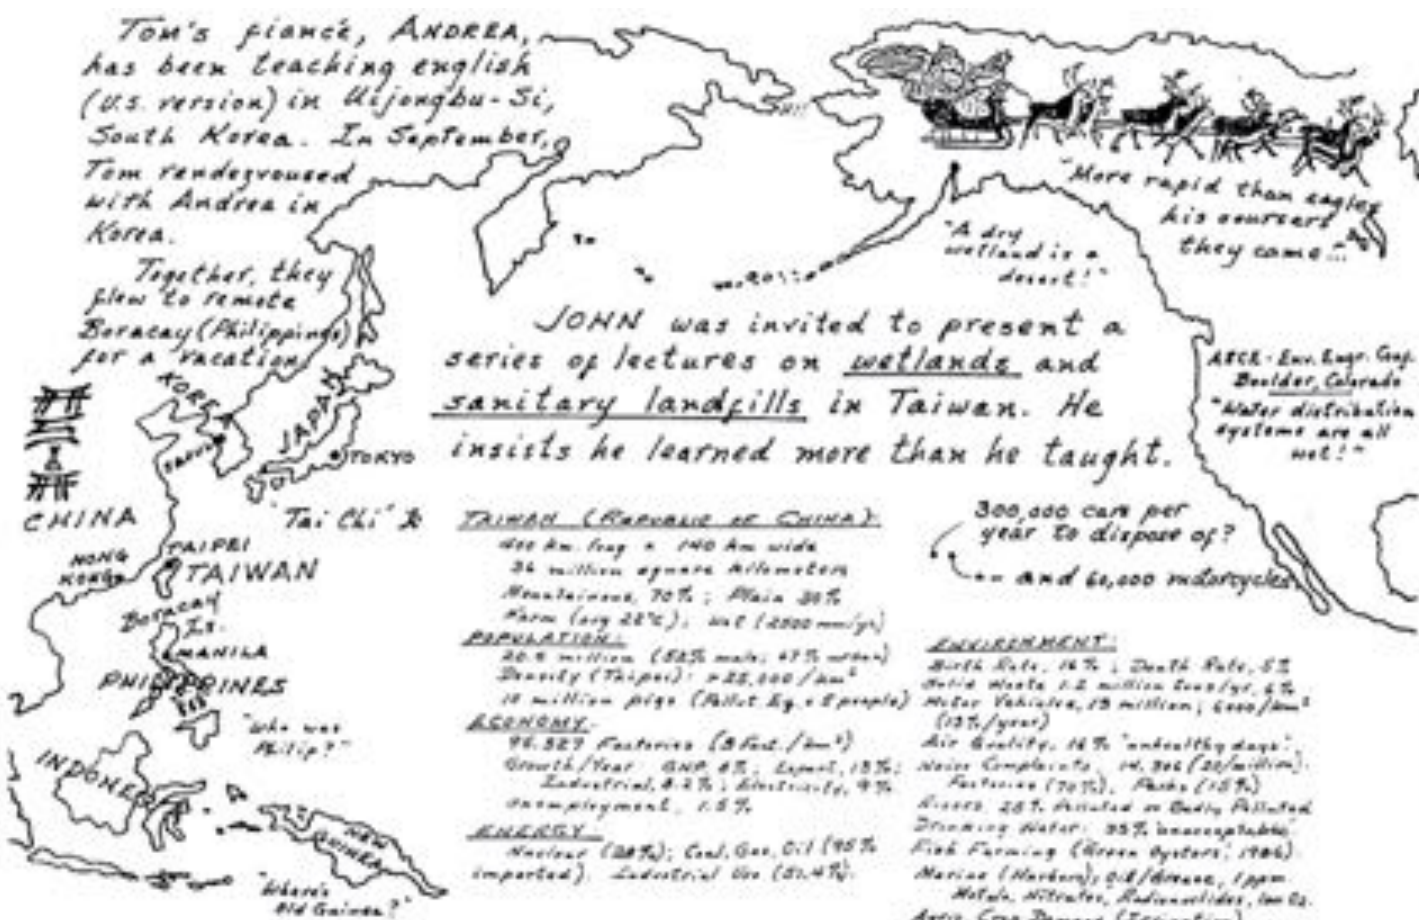 Tom's fiancé, ANDREA,
has been teaching english
(U.S. version) in Uijongbu-Si,
South Korea. In September,
Tom rendezvoused
with Andrea in
Korea.
Together, they
flew to remote
Boracay (Philippines)
for a vacation
"More rapid than eagles
his coursers
they came..."
"A dry
wetland is a
desert!"
JOHN was invited to present a
series of lectures on wetlands and
sanitary landfills in Taiwan. He
insists he learned more than he taught.
ASCE - Env. Engr. Conf.
Boulder, Colorado
"Water distribution
systems are all
wet!"
300,000 cars per
year to dispose of?
and 60,000 motorcycles
KOREA
JAPAN
TOKYO
CHINA
"Tai Chi"
HONG
KONG
TAIPEI
TAIWAN
Boracay
Is.
MANILA
PHILIPPINES
"Who was
Philip?"
INDONESIA
NEW
GUINEA
"Where's
Old Guinea?"
TAIWAN (REPUBLIC OF CHINA)
400 km long x 140 km wide
36 million square kilometers
Mountainous, 70%; Plain 30%
Warm (avg 22°C); Wet (2500 mm/yr)
POPULATION:
(52% male; 47% urban)
Density (Taipei): >25,000/km²
10 million pigs (Pollut. Eq. = 5 people)
ECONOMY:
Factories (3 Fact./km²)
Growth/Year: GNP, 6%; Export, 13%;
Industrial, 8.2%; Electricity, 9%
Unemployment, 1.5%
ENERGY
Nuclear; Coal, Gas, Oil (95%
imported). Industrial Use
ENVIRONMENT:
Birth Rate, 16%; Death Rate, 5%
Solid Waste
Motor Vehicles, 13 million;
(13%/year)
Air Quality, 16% "unhealthy days".
Noise Complaints,
Factories (70%), Parks (15%)
Rivers, 25% Polluted or Badly Polluted
Drinking Water: "unacceptable"
Fish Farming (Green Oysters, 1986).
Marine (Harbors); Oil/Grease, 1 ppm
Metals, Nitrates, Radionuclides,
Crop Damage (Irrigation)